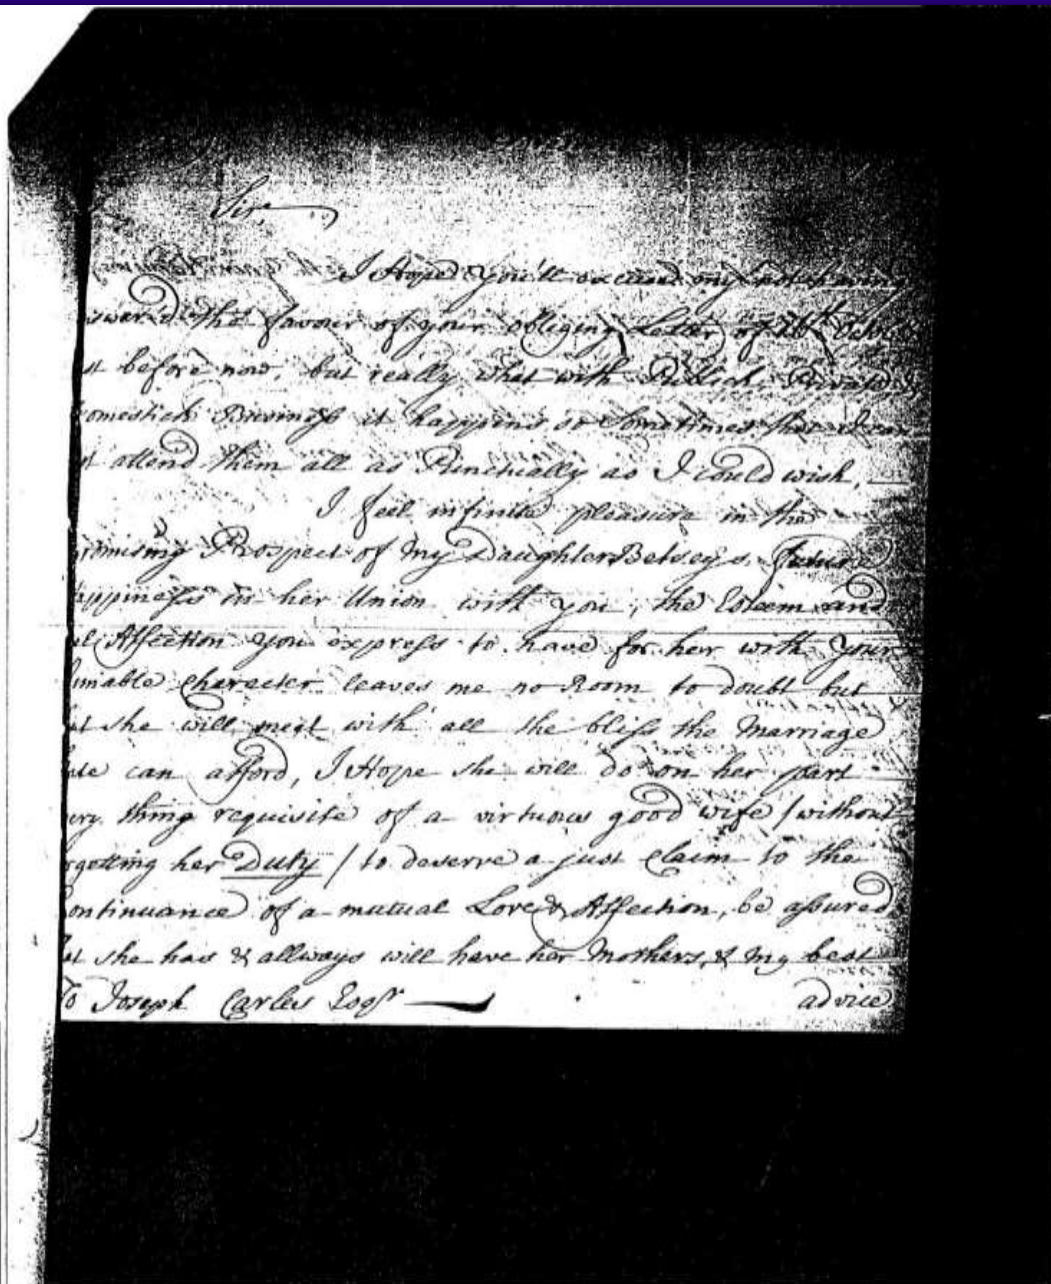 Sir
I Hope you'll excuse my not having
iswer'd the favour of your obliging Letter of
st before now, but really what with Publick, Private &
omestick Buisiness it happens so Sometimes that I can
ot attend them all as Punctually as I could wish,
I feel infinite pleasure in the
romising Prospect of My Daughter Betsey's Future
appiness in her Union with you, the Esteem and
al Affection you express to have for her with your
miable Charecter leaves me no Room to doubt but
at she will meet with all the bliss the Marriage
ate can afford, I Hope she will do on her part
ery thing requisite of a virtuous good wife /without
rgetting her Duty / to deserve a just Claim to the
ontinuance of a mutual Love & Affection, be assured
at she has & allways will have her Mothers, & my best
To Joseph Carles Esqr advice